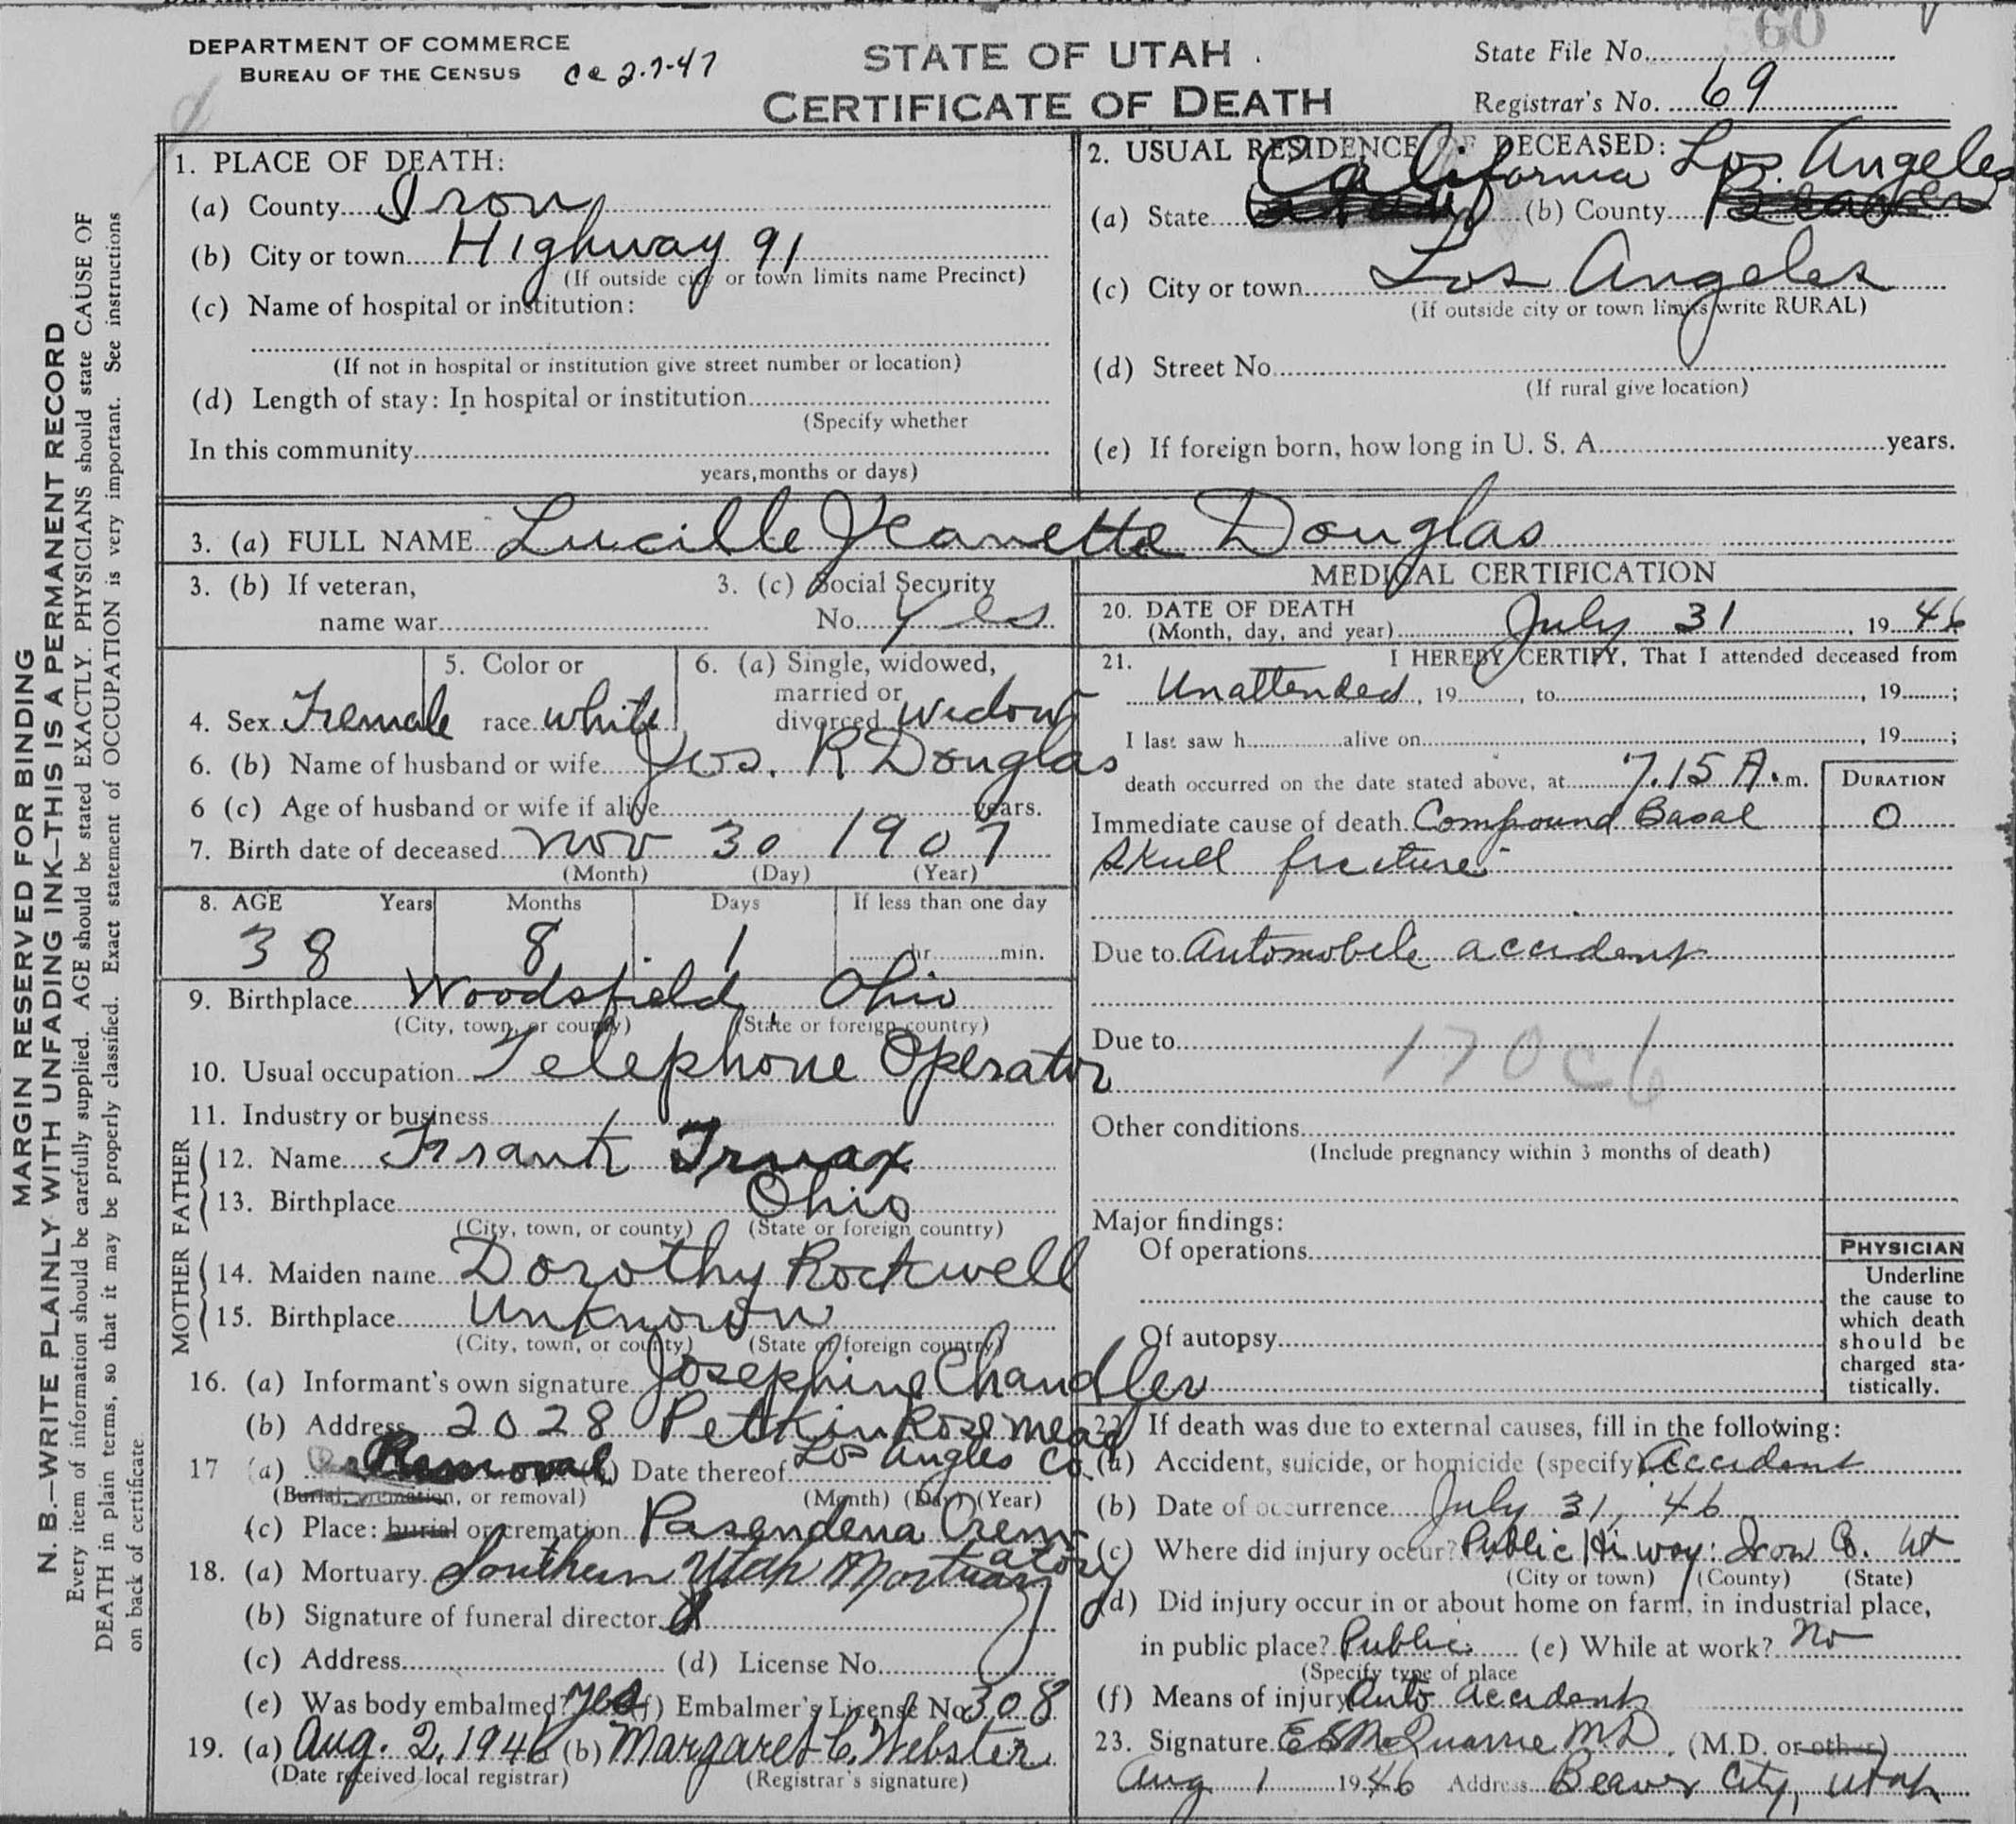 DEPARTMENT OF COMMERCE
BUREAU OF THE CENSUS
ca 2-7-47
STATE OF UTAH
CERTIFICATE OF DEATH
State File No. 60
Registrar's No. 69
MARGIN RESERVED FOR BINDING
N. B.—WRITE PLAINLY WITH UNFADING INK—THIS IS A PERMANENT RECORD
Every item of information should be carefully supplied. AGE should be stated EXACTLY. PHYSICIANS should state CAUSE OF
DEATH in plain terms, so that it may be properly classified. Exact statement of OCCUPATION is very important. See instructions
on back of certificate
1. PLACE OF DEATH:
(a) County Iron
(b) City or town Highway 91
(If outside city or town limits name Precinct)
(c) Name of hospital or institution:
(If not in hospital or institution give street number or location)
(d) Length of stay: In hospital or institution
(Specify whether
In this community
years, months or days)
2. USUAL RESIDENCE OF DECEASED:
California Los Angeles
(a) State (b) County Beaver
(c) City or town Los Angeles
(If outside city or town limits write RURAL)
(d) Street No.
(If rural give location)
(e) If foreign born, how long in U. S. A. years.
3. (a) FULL NAME Lucille Jeanette Douglas
3. (b) If veteran,
name war
3. (c) Social Security
No. Yes
4. Sex Female
5. Color or
race white
6. (a) Single, widowed,
married or
divorced widow
6. (b) Name of husband or wife Jos. R Douglas
6 (c) Age of husband or wife if alive years.
7. Birth date of deceased Nov 30 1907
(Month) (Day) (Year)
8. AGE Years Months Days If less than one day
38 8 1 hr. min.
9. Birthplace Woodsfield, Ohio
(City, town, or county) (State or foreign country)
10. Usual occupation Telephone Operator
11. Industry or business
FATHER
12. Name Frank Truax
13. Birthplace Ohio
(City, town, or county) (State or foreign country)
MOTHER
14. Maiden name Dorothy Rockwell
15. Birthplace Unknown
(City, town, or county) (State or foreign country)
16. (a) Informant's own signature Josephine Chandler
(b) Address 2028 Petkin Rosemead
Los Angles Co.
17 (a) Removal (b) Date thereof
(Burial, cremation, or removal) (Month) (Day) (Year)
(c) Place: burial or cremation Pasendena Crematory
18. (a) Mortuary Southern Utah Mortuary
(b) Signature of funeral director
(c) Address (d) License No.
(e) Was body embalmed? yes (f) Embalmer's License No 308
19. (a) Aug. 2, 1946 (b) Margaret C. Webster
(Date received local registrar) (Registrar's signature)
MEDICAL CERTIFICATION
20. DATE OF DEATH
(Month, day, and year) July 31, 1946
21. I HEREBY CERTIFY, That I attended deceased from
Unattended, 19 , to , 19 ;
I last saw h alive on , 19 ;
death occurred on the date stated above, at 7.15 A.m.
DURATION
Immediate cause of death Compound Basal 0
Skull frcture
Due to Automobile accident
Due to
170c6
Other conditions
(Include pregnancy within 3 months of death)
Major findings:
Of operations
Of autopsy
PHYSICIAN
Underline
the cause to
which death
should be
charged sta-
tistically.
22. If death was due to external causes, fill in the following:
(a) Accident, suicide, or homicide (specify) Accident
(b) Date of occurrence July 31, 46
(c) Where did injury occur? Public Hiway: Iron Co. Ut
(City or town) (County) (State)
(d) Did injury occur in or about home on farm, in industrial place,
in public place? Public (e) While at work? No
(Specify type of place
(f) Means of injury Auto accident
23. Signature E S McQuarrie MD. (M.D. or other)
Aug 1 1946 Address Beaver City, Utah